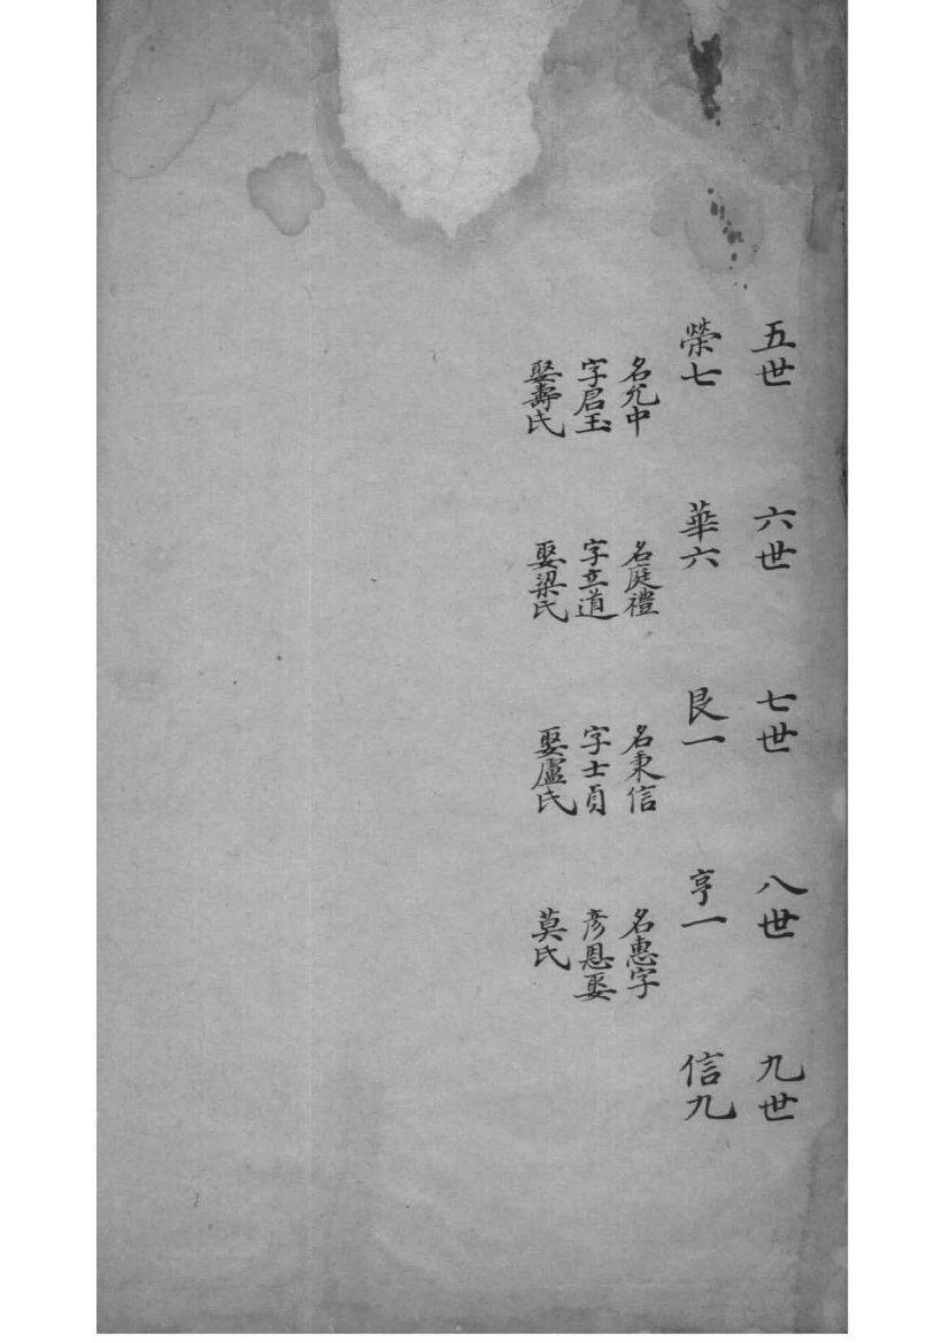 五世
六世
七世
八世
九世
榮七
名允中
字启玉
娶壽氏
華六
名庭禮
字立道
娶梁氏
艮一
名秉信
字士貞
娶盧氏
亨一
名惠字
彥恩娶
莫氏
信九